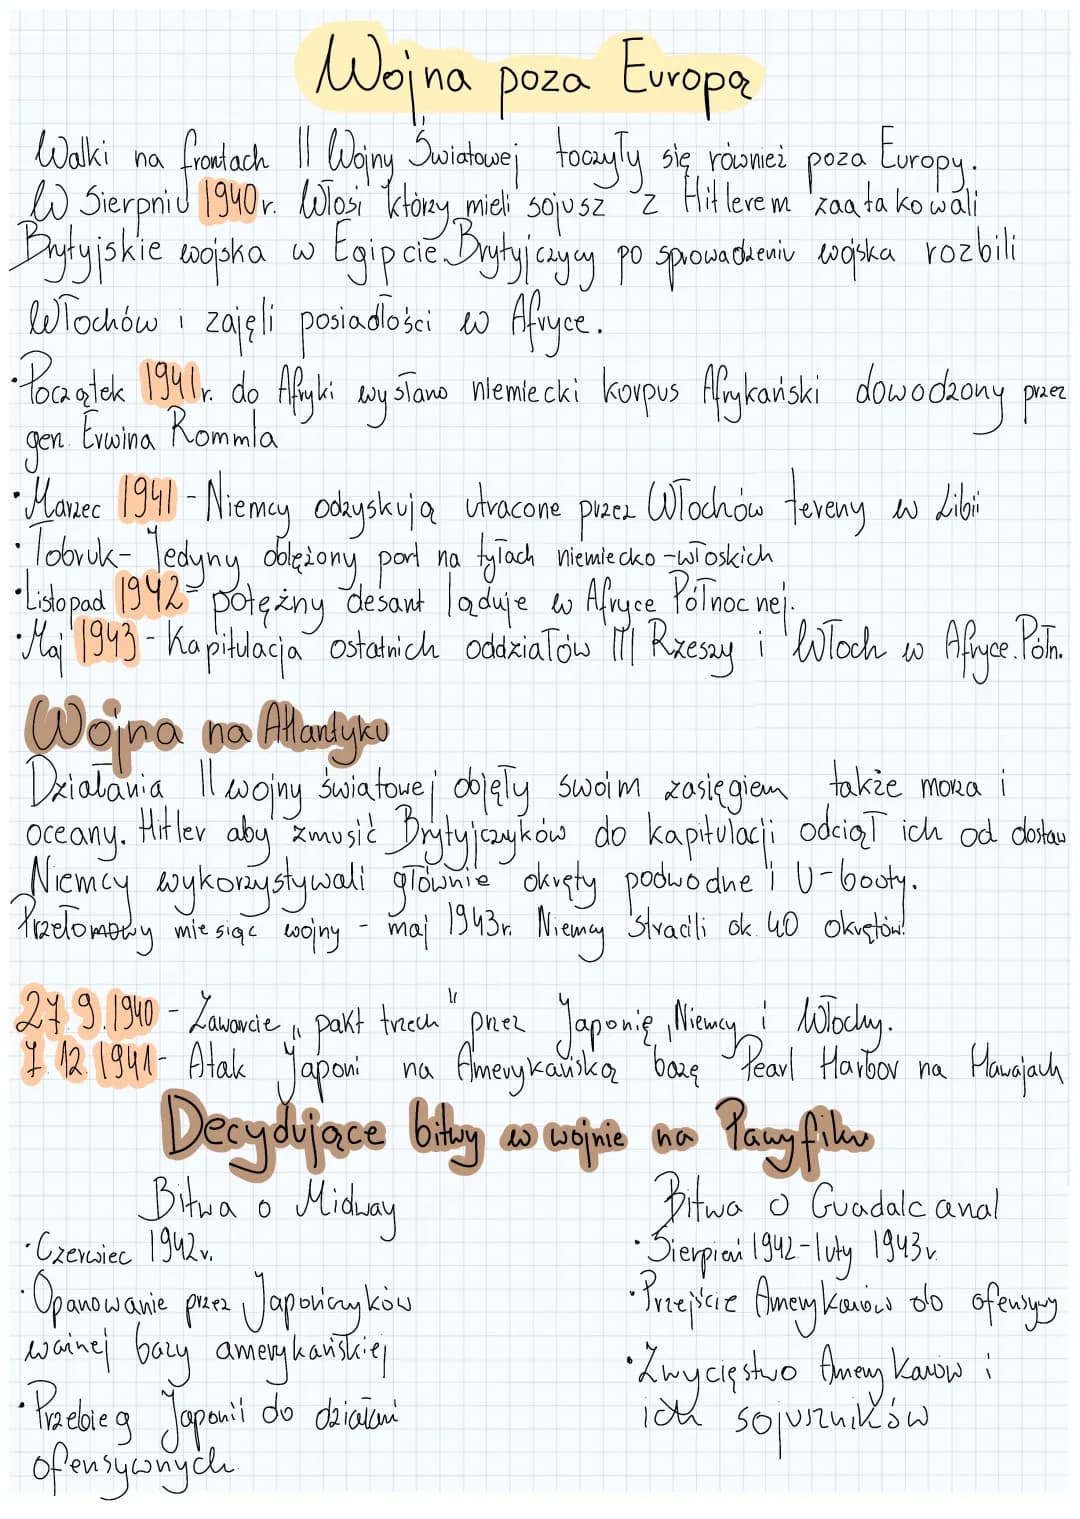 Wojna poza Europą
Walki na frontach II Wojny Światowej toczyły się również poza Europy.
W Sierpniu 1940r. Włosi którzy mieli sojusz z Hitlerem zaatakowali
Brytyjskie wojska w Egipcie. Brytyjczycy po sprowadzeniu wojska rozbili
Włochów i zajęli posiadłości w Afryce.
•Początek 1941r. do Afryki wysłano niemiecki korpus Afrykański dowodzony przez
gen. Erwina Rommla
•Marzec 1941 - Niemcy odzyskują utracone przez Włochów tereny w Libii
•Tobruk- Jedyny oblężony port na tyłach niemiecko-włoskich
•Listopad 1942- potężny desant ląduje w Afryce Północnej.
•Maj 1943 - Kapitulacja ostatnich oddziałów III Rzeszy i Włoch w Afryce.Półn.
Wojna na Atlantyku
Działania II wojny światowej objęły swoim zasięgiem także morza i
oceany. Hitler aby zmusić Brytyjczyków do kapitulacji odciął ich od dostaw
Niemcy wykorzystywali głównie okręty podwodne i U-booty.
Przełomowy miesiąc wojny - maj 1943r. Niemcy stracili ok. 40 okrętów!
27.9.1940 - Zawarcie „pakt trzech" przez Japonię, Niemcy i Włochy.
7.12.1941- Atak Japoni na Amerykańską bazę Pearl Harbor na Hawajach
Decydujące bitwy w wojnie na Pacyfiku
Bitwa o Midway
•Czerwiec 1942r.
•Opanowanie przez Japończyków
ważnej bazy amerykańskiej
•Przebieg Japonii do działań
ofensywnych.
Bitwa o Guadalcanal
•Sierpień 1942-luty 1943r.
•Przejście Amerykanów do ofensywy
•Zwycięstwo Amerykanów i
ich sojuszników